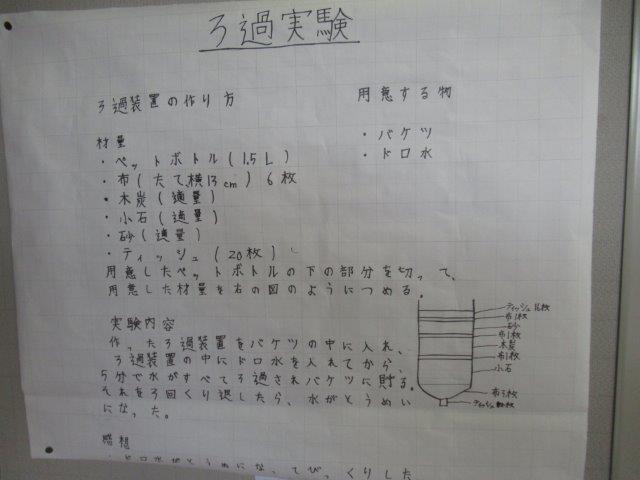 ろ過実験
ろ過装置の作り方
材量
・ペットボトル(1.5L)
・布(たて、横13cm)6枚
・木炭(適量)
・小石(適量)
・砂(適量)
・ティッシュ(20枚)
用意する物
・バケツ
・ドロ水
用意したペットボトルの下の部分を切って、
用意した材量を右の図のようにつめる。
ティッシュ
布1枚
砂
布1枚
木炭
布1枚
小石
布3枚
ティッシュ
実験内容
作ったろ過装置をバケツの中に入れ、
ろ過装置の中にドロ水を入れてから、
5分で水がすべてろ過されバケツに貯る。
それを3回くり返したら、水がとうめい
になった。
感想
・ドロ水がとうめいになってびっくりした